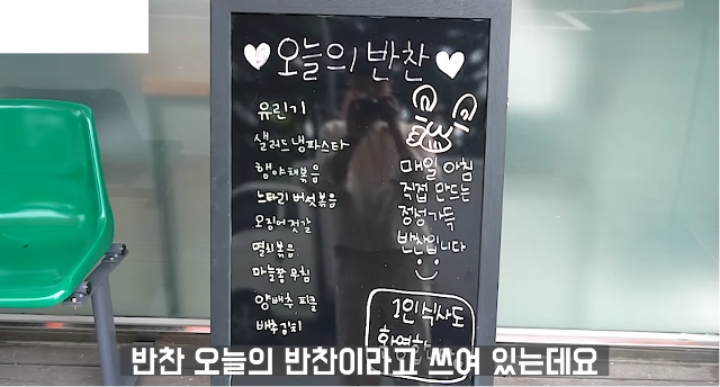 오늘의 반찬
유린기
샐러드 냉파스타
햄야채볶음
느타리버섯볶음
오징어젓갈
멸치볶음
마늘쫑무침
양배추 피클
배추김치
매일 아침
직접 만드는
정성가득
반찬입니다
1인 식사도
반찬 오늘의 반찬이라고 쓰여 있는데요